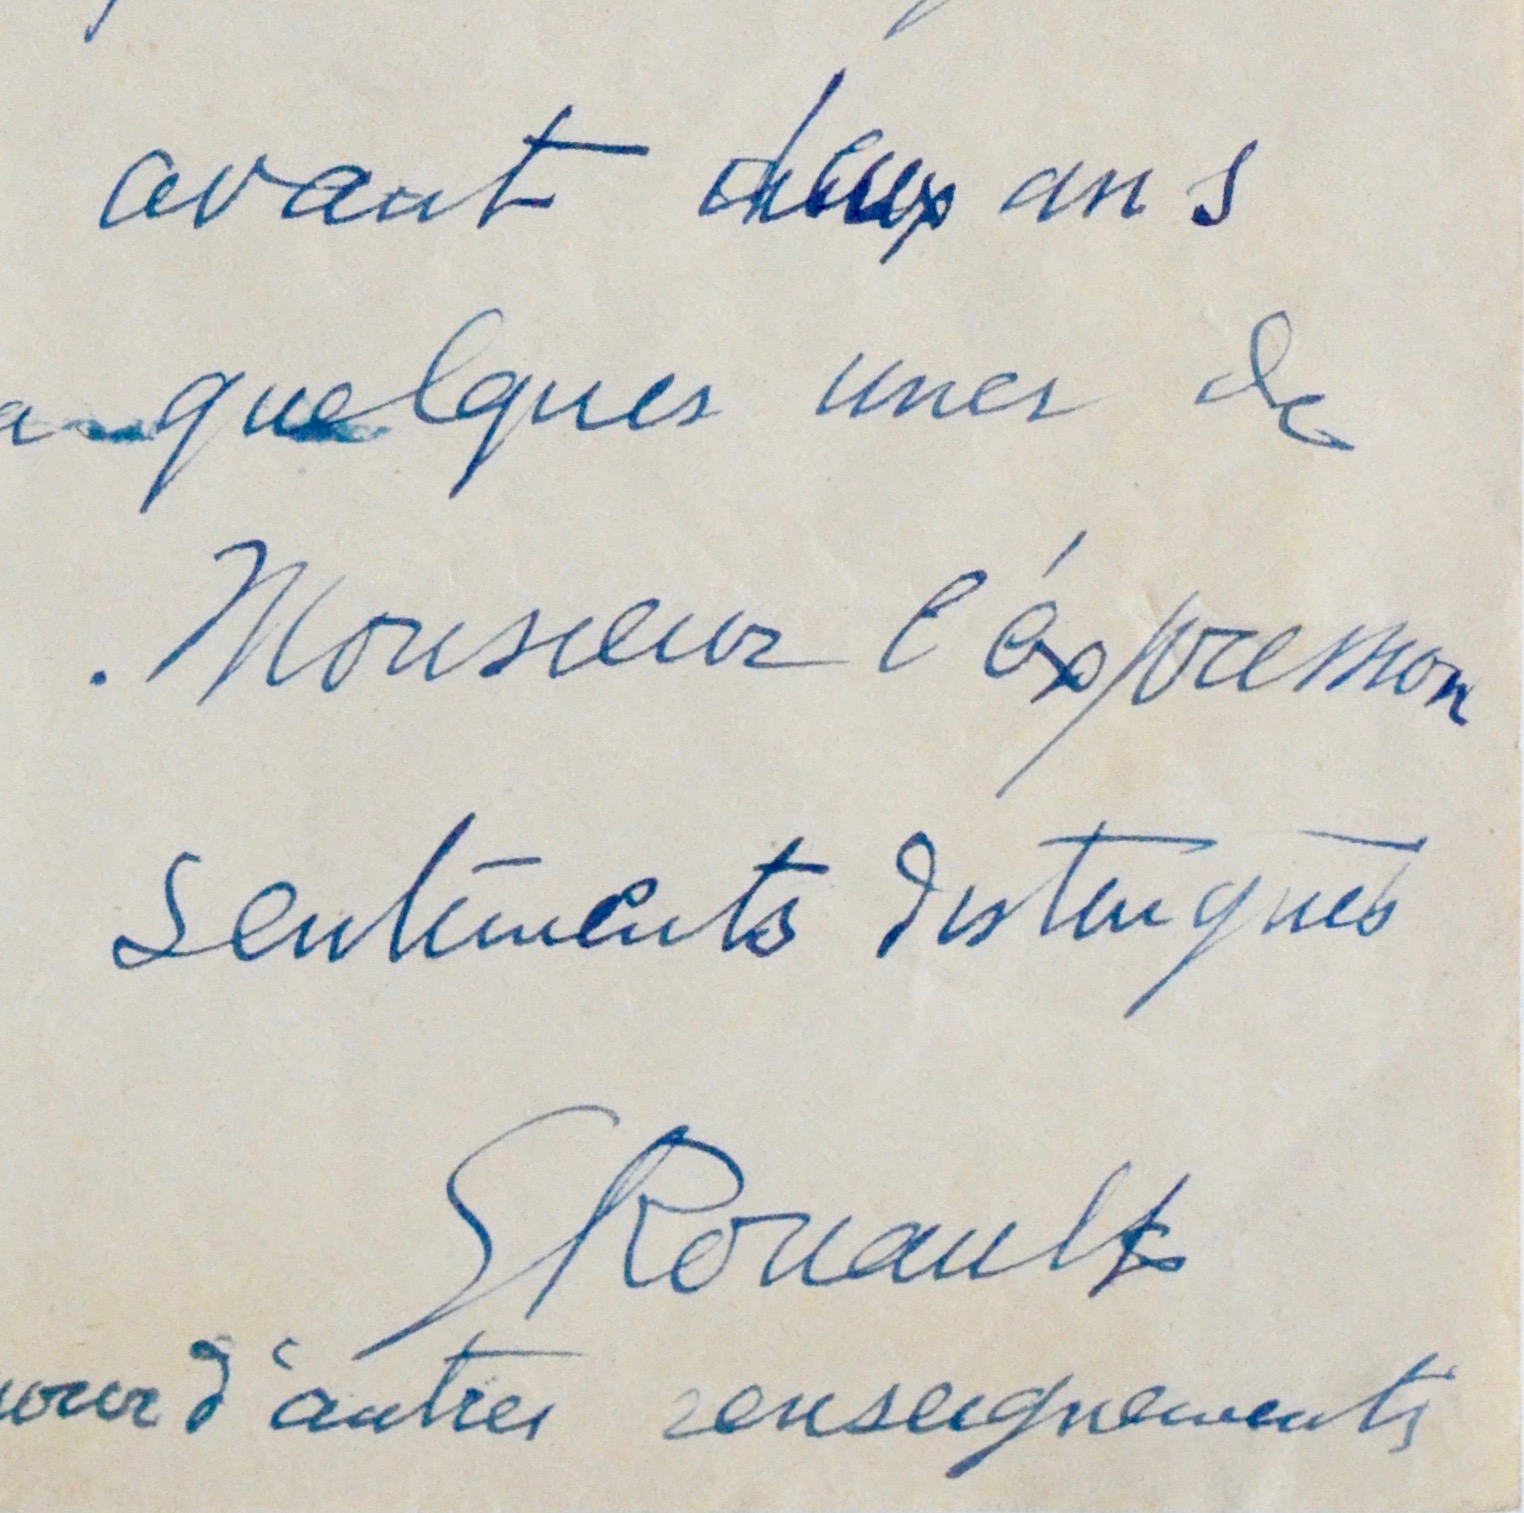 avant deux ans
a quelques unes de
. Monsieur l'éxpression
sentiments distingués
GRouault
pour d'autres renseignements